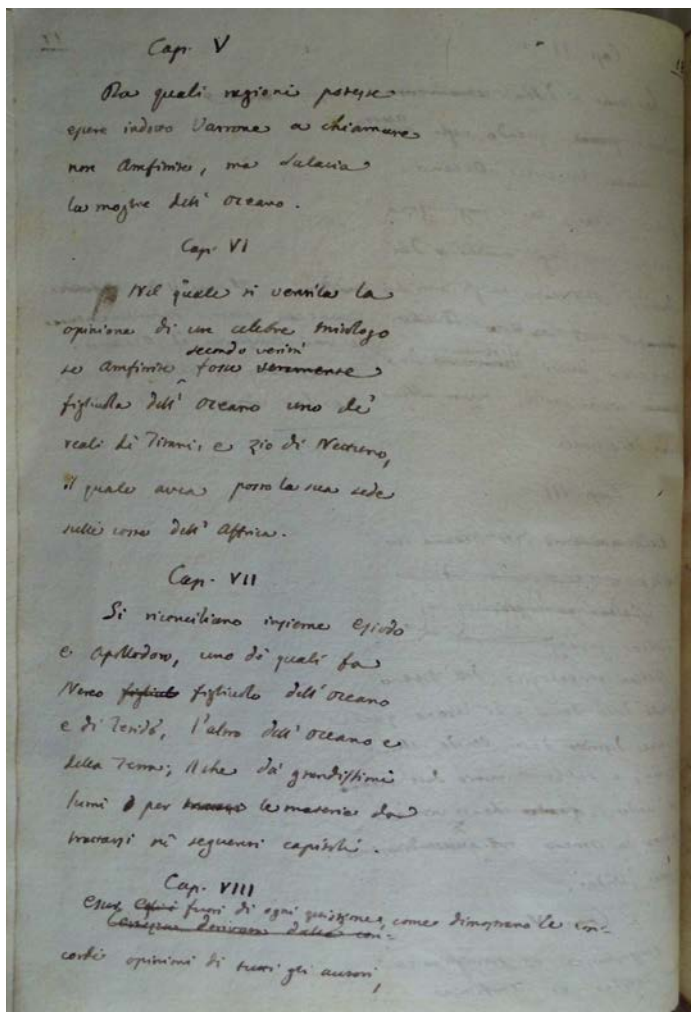 Cap. V
Da quali ragioni potesse
essere indotto Varrone a chiamare
non Amfitrite, ma Salacia
la moglie dell' Oceano.
Cap. VI
Nel quale si ventila la
opinione di un celebre mitologo
secondo verità
se Amfitrite fosse veramente
figliuola dell' Oceano uno de'
reali di Titani, e zio di Nettuno,
il quale avea posto la sua sede
sulle coste dell' Affrica.
Cap. VII
Si riconciliano insieme Esiodo
e Apollodoro, uno de' quali fa
Nereo figliuol figliuolo dell' Oceano
e di Teti, l'altro dell' Oceano e
della Terra; il che dà grandissimi
lumi per le materie da
trattarsi ne' seguenti capitoli.
Cap. VIII
fuori di ogni quistione, come dimostrano le con-
derivare dalle con-
cordi opinioni di tutti gli autori,